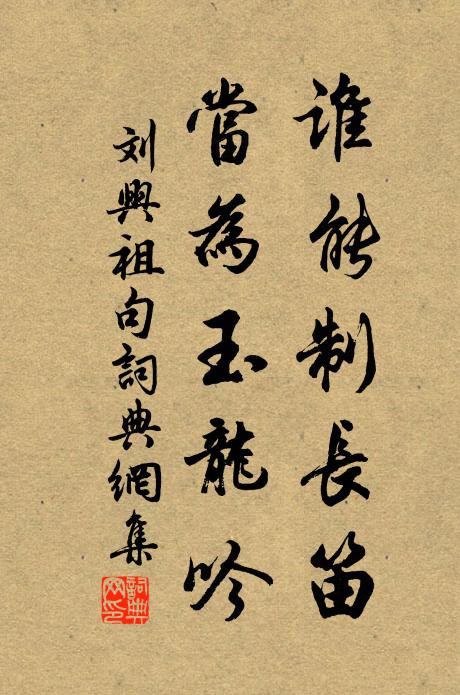 誰能制長笛
當為玉龍吟
刘興祖句詞典網集
詞典网印